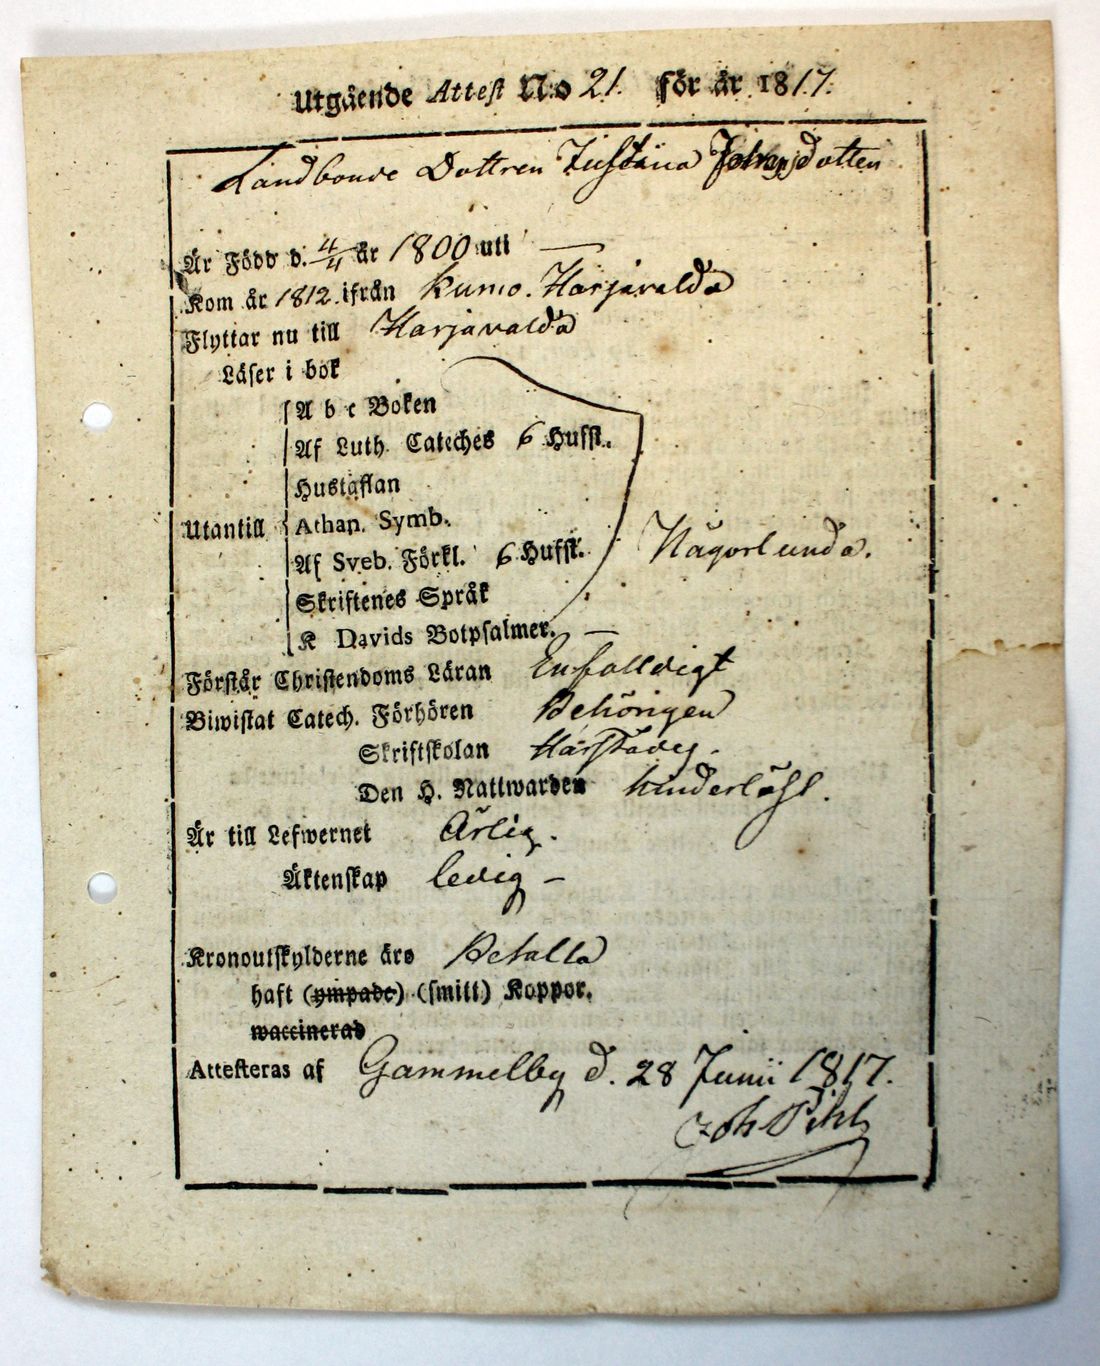 Utgående Attest N:o 21. för år 1817.
Landbonde Dottren Justina Johansdotter
Är Född d. 4/4 år 1800 uti —
Kom år 1812. ifrån Kumo. Harjavalda
Flyttar nu till Harjavalda
Läser i bok
A b c Boken
Af Luth. Cateches 6 Hufst.
Hustaflan
Utantill Athan. Symb.
Af Sveb. Förkl. 6 Hufst.
Någorlunda.
Skriftenes Språk
K Davids Botpsalmer. —
Förstår Christendoms Läran Enfalldigt
Biwistat Catech. Förhören Behörigen
Skriftskolan
Den H. Nattwarden hinderlöst.
Är till Lefwernet Ärlig.
Äktenskap ledig –
Kronoutskylderne äro Betalta
haft (ympade) (smitt) Koppor.
waccinerad
Attesteras af Gammelby d. 28 Junii 1817.
Joh Pihl